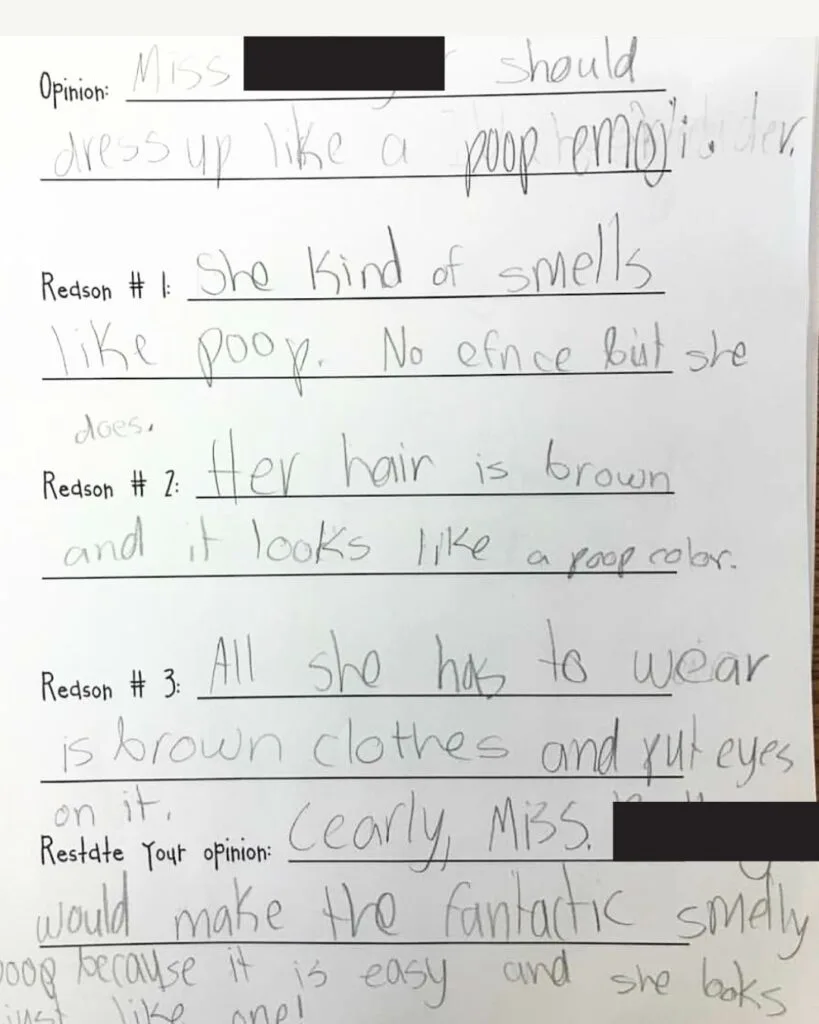 Opinion: Miss should
dress up like a poop emoji.
Reason # 1: She kind of smells
like poop. No efnce but she
does.
Reason # 2: Her hair is brown
and it looks like a poop color.
Reason # 3: All she has to wear
is brown clothes and put eyes
on it.
Restate Your opinion: Cearly, Miss.
would make the fantactic smelly
poop because it is easy and she looks
just like one!